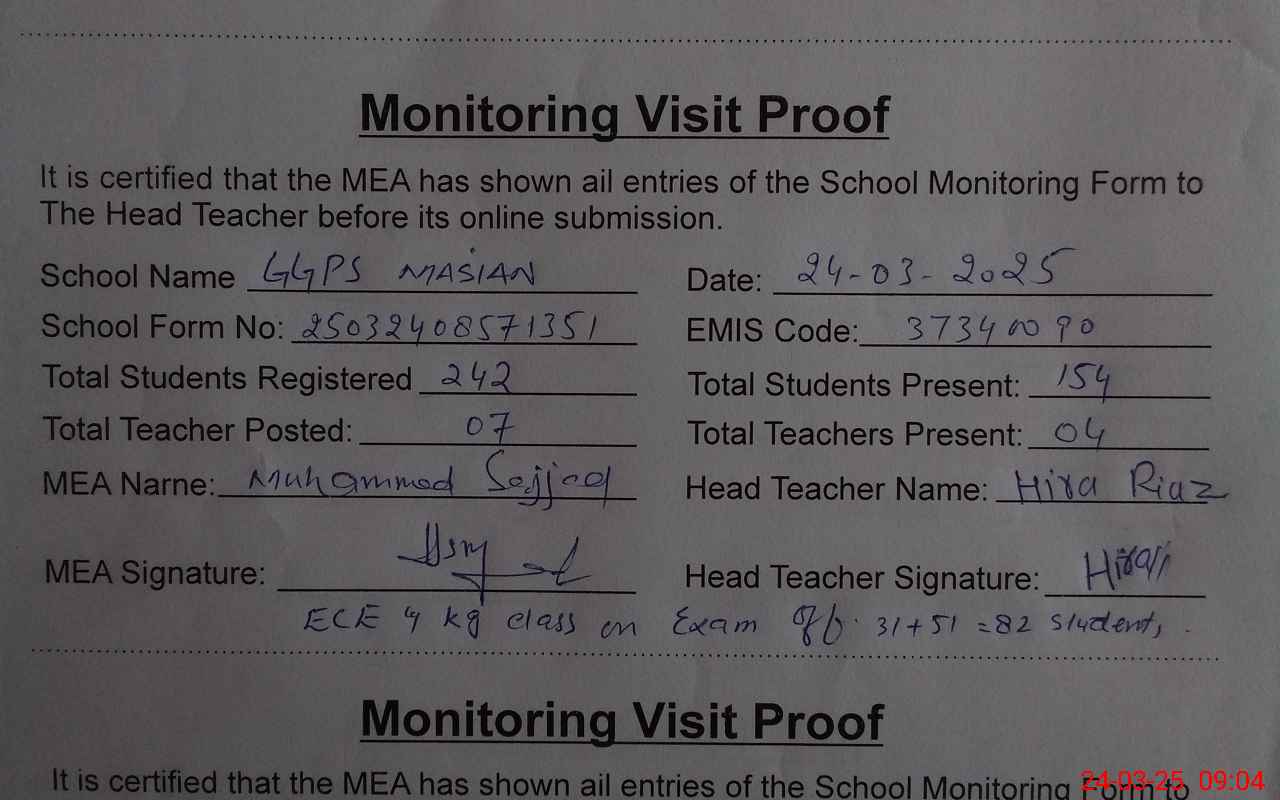 Monitoring Visit Proof
It is certified that the MEA has shown ail entries of the School Monitoring Form to
The Head Teacher before its online submission.
School Name GGPS MASIAN Date: 24-03-2025
School Form No: 25032408571351 EMIS Code: 37340090
Total Students Registered 242 Total Students Present: 154
Total Teacher Posted: 07 Total Teachers Present: 04
MEA Narne: Muhammad Sajjad Head Teacher Name: Hira Riaz
MEA Signature: Head Teacher Signature: Hira
ECE kg class on Exam off. 31+51 =82 students.
Monitoring Visit Proof
It is certified that the MEA has shown ail entries of the School Monitoring Form to
24-03-25 09:04